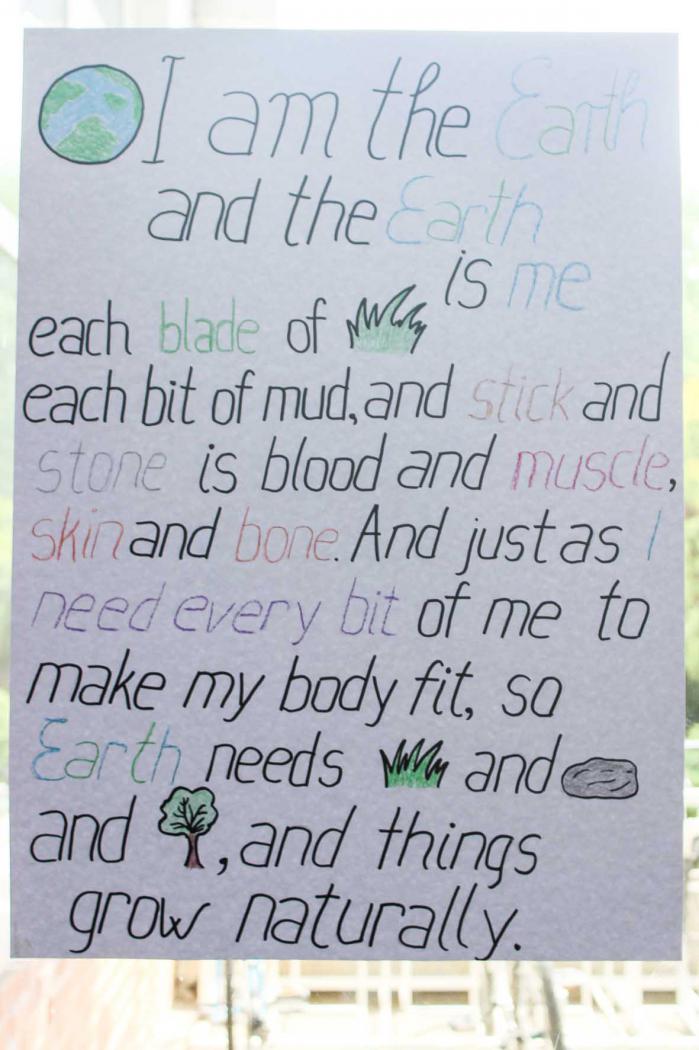 I am the Earth
and the Earth
is me
each blade of
each bit of mud, and stick and
stone is blood and muscle,
skin and bone. And just as I
need every bit of me to
make my body fit, so
Earth needs and
and , and things
grow naturally.